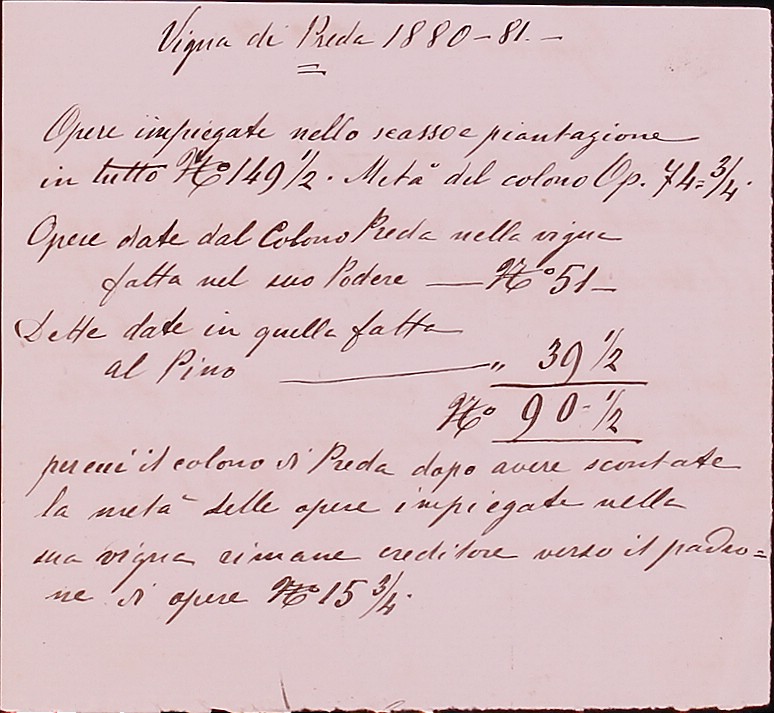 Vigna di Preda 1880-81.-
Opere impiegate nello scasso e piantazione
in tutto N.º 149 1/2. Metà del colono Op. 74=3/4.
Opere date dal Colono Preda nella vigna
fatta nel suo Podere — N.º 51-
Dette date in quella fatta
al Pino — „ 39 1/2
N.º 90-1/2
per cui il colono di Preda dopo avere scontate
la metà delle opere impiegate nella
sua vigna rimane creditore verso il padro=
ne di opere N.º 15 3/4.